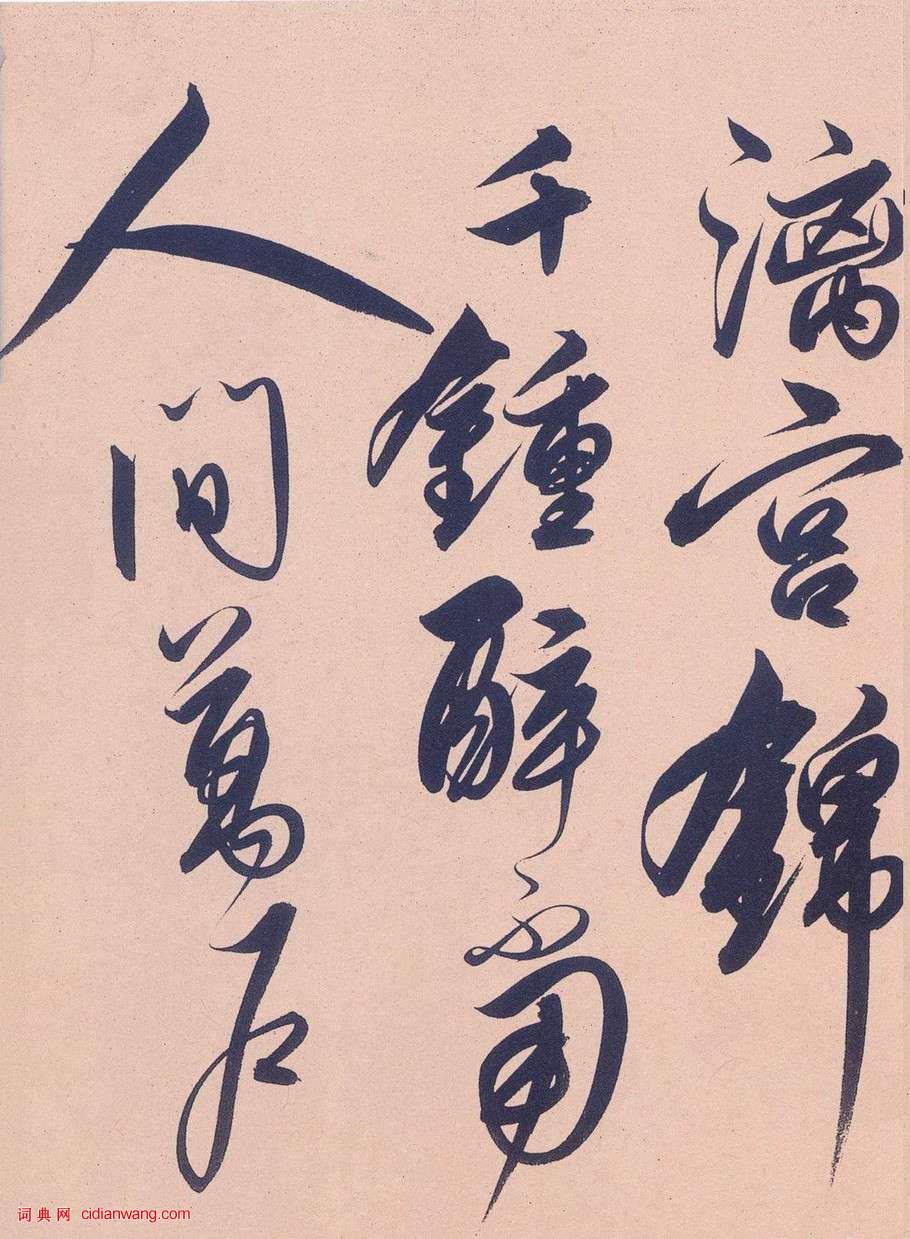 漓宮錦
千鍾醉不啻
人間萬戶
词典网 cidianwang.com